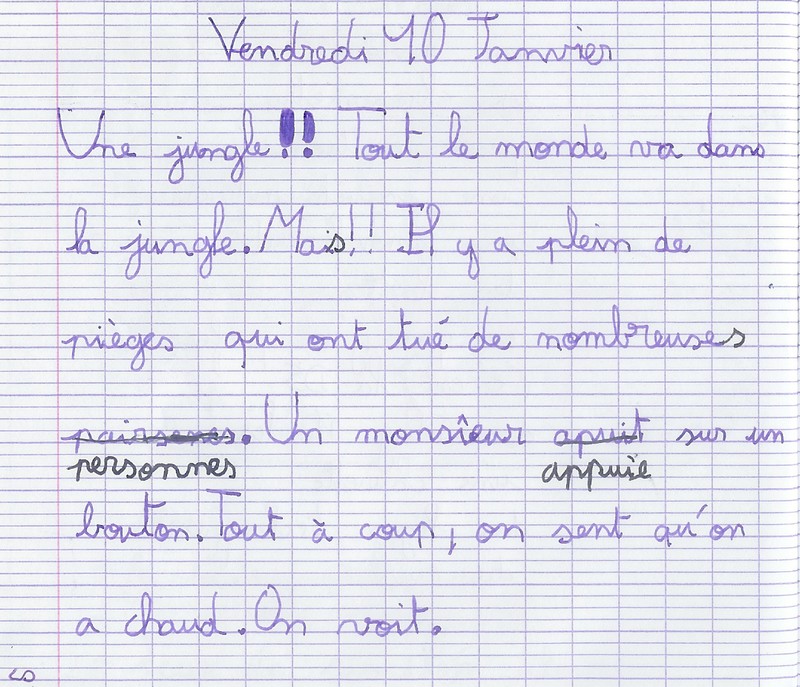 Vendredi 10 Janvier
Une jungle!! Tout le monde va dans
la jungle. Mais!! Il y a plein de
pièges qui ont tué de nombreuses
. Un monsieur apuit sur un
personnes appuie
bouton. Tout à coup, on sent qu'on
a chaud. On voit.